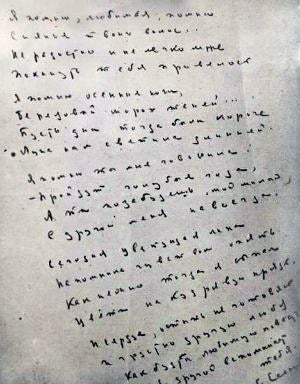 Я помню, любимая, помню
Сиянье твоих волос...
Не радостно и не легко мне
Покинуть тебя привелось.
Я помню осенние ночи,
Березовый шорох теней...
Пусть дни тогда были короче,
Луна нам светила длинней.
Я помню ты мне говорила:
"Пройдут голубые года,
И ты позабудешь, мой милый,
С другой меня навсегда".
Сегодня цветущая липа
Напомнила чувствам опять,
Как нежно тогда я сыпал
Цветы на кудрявую прядь.
И сердце, остыть не готовясь
И грустно другую любя,
Как будто любимую повесть
С другой вспоминает тебя.